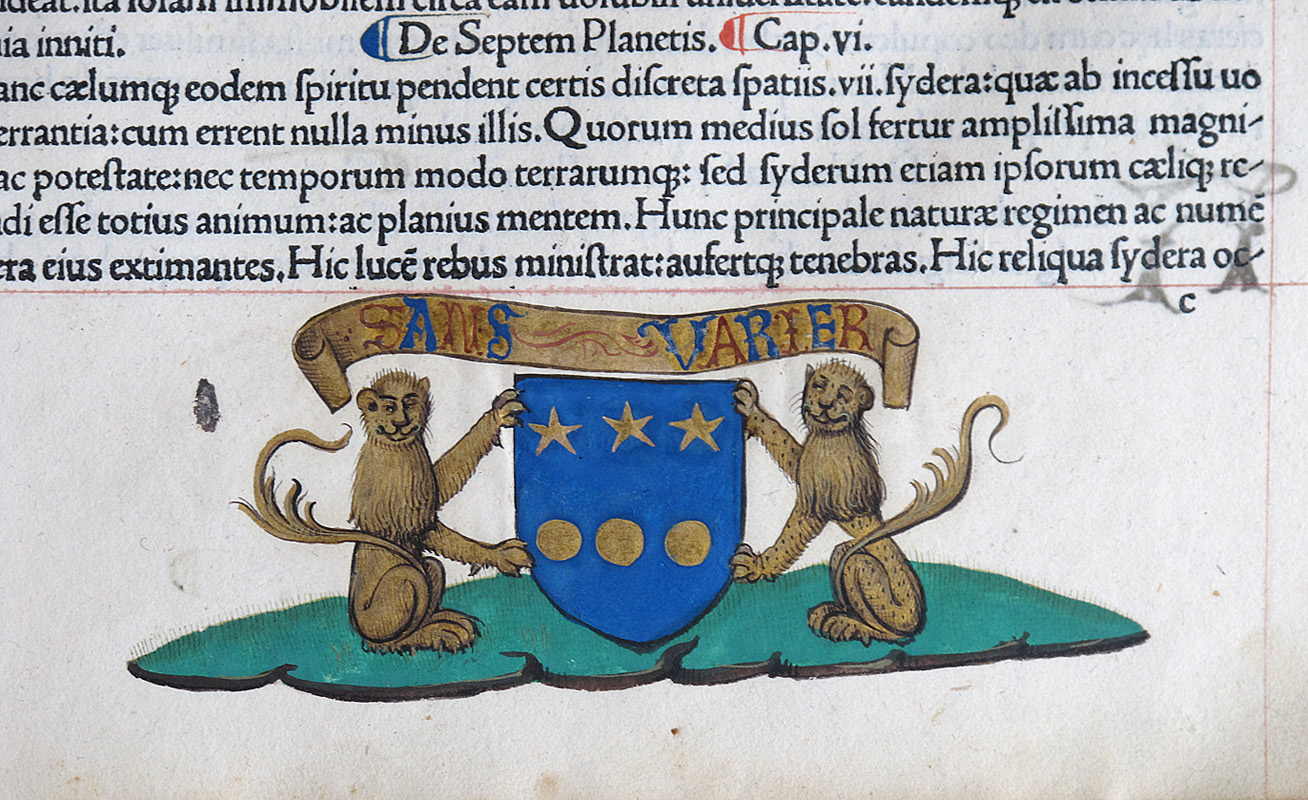 immobilem circa eam
inniti.
De Septem Planetis. Cap.vi.
cælumq; eodem ſpiritu pendent certis diſcreta ſpatiis.vii.ſydera:quæ ab inceſſu uo
errantia:cum errent nulla minus illis.Quorum medius ſol fertur ampliſſima magni-
ac poteſtate:nec temporum modo terrarumq;: ſed ſyderum etiam ipſorum cæliq; re-
di eſſe totius animum:ac planius mentem.Hunc principale naturæ regimen ac numē
era eius extimantes.Hic lucē rebus miniſtrat:aufertq; tenebras.Hic reliqua ſydera oc-
c
SANS VARIER